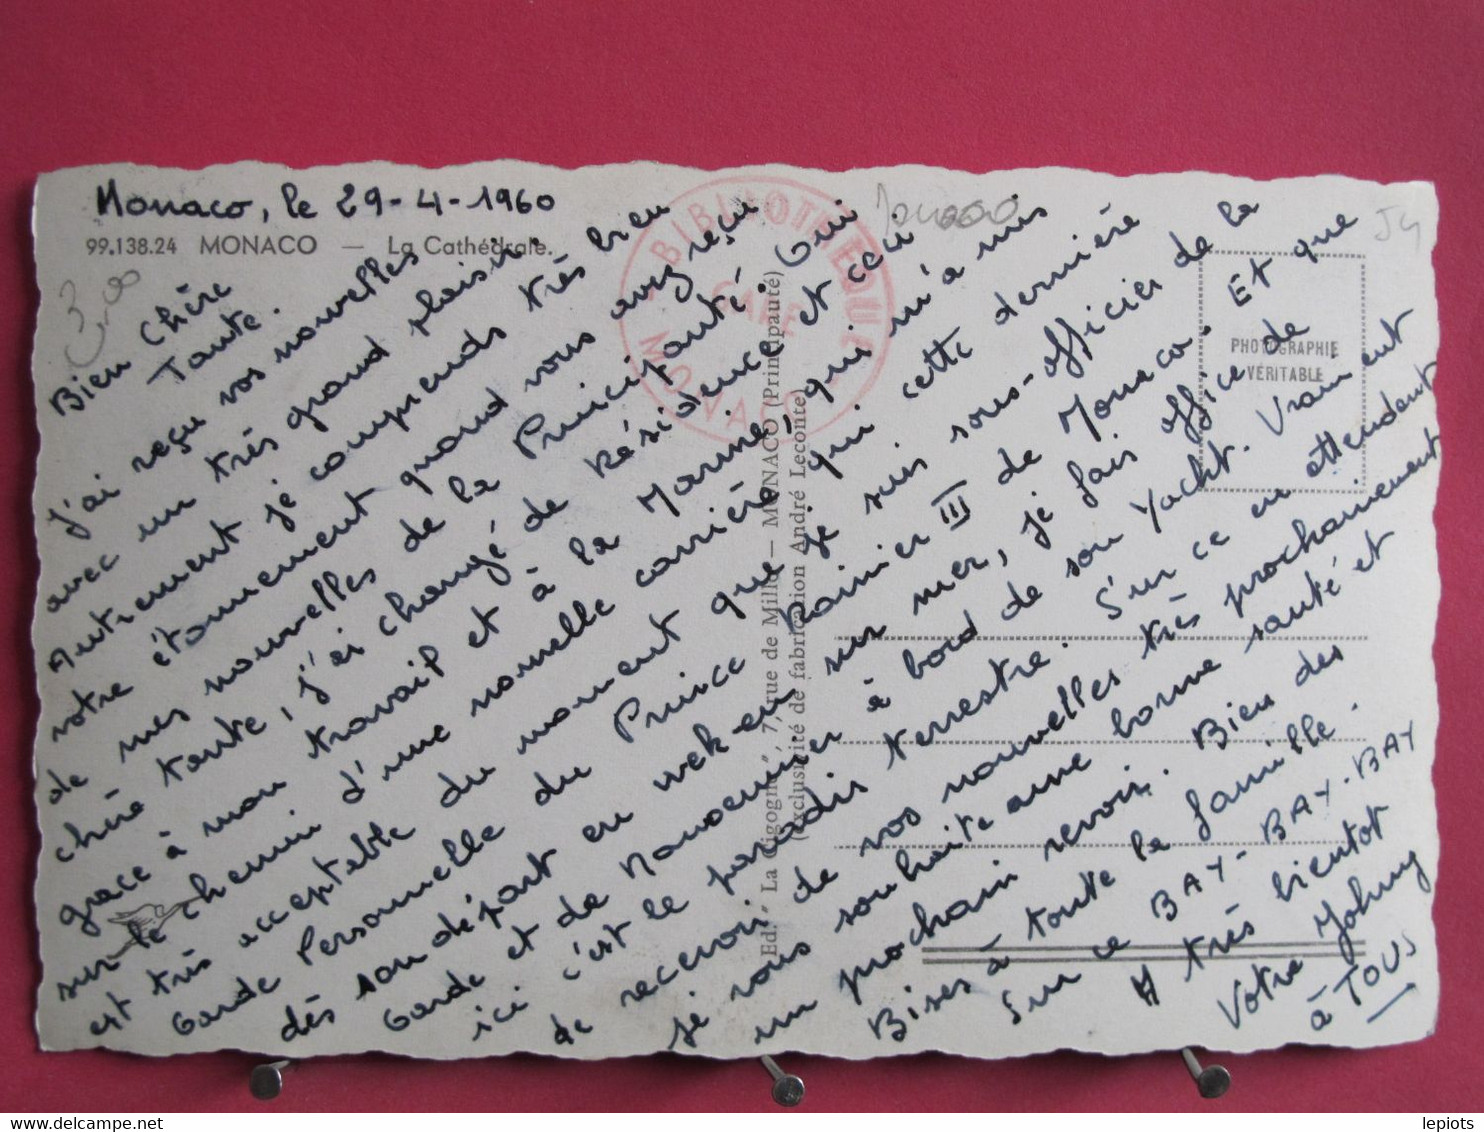 Monaco, le 29-4-1960
99.138.24 MONACO — La Cathédrale.
Bien Chère
Tante.
J'ai reçu vos nouvelles
avec un très grand plaisir.
Autrement je comprends très bien
votre étonnement quand vous avez reçu
de mes nouvelles de la Principauté. Oui
chère tante, j'ai changé de Résidence et ceci
grace à mon travail et à la Marine, qui m'a mis
sur le chemin d'une nouvelle carrière qui cette dernière
est très acceptable du moment que je suis sous-officier de la
Garde Personnelle du Prince Rainier III de Monaco. Et que
dès son départ en week-end sur mer, je fais office de
Garde et de à bord de son Yacht. Vraiment
ici c'est le paradis terrestre. Sur ce en attendent
de recevoir de vos nouvelles très prochainement
je vous souhaite une bonne santé et
un prochain revoir. Bien des
Bises à toute la famille.
Sur ce BAY-BAY-BAY
A très bientot
Votre Johnny
à TOUS
BIBLIOTHEQUE
GARE
MONACO
PHOTOGRAPHIE
VÉRITABLE
Ed. "La Cigogne", 7, rue de Millo — MONACO (Principauté)
(exclusivité de fabrication André Leconte)
lepiots
delcampe.net